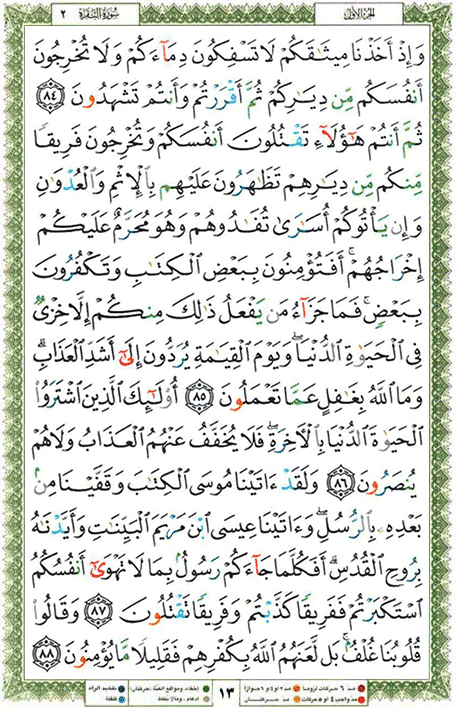 الجزء الأول
سورة البقرة ٢
وَإِذْ أَخَذْنَا مِيثَٰقَكُمْ لَا تَسْفِكُونَ دِمَآءَكُمْ وَلَا تُخْرِجُونَ
أَنفُسَكُم مِّن دِيَٰرِكُمْ ثُمَّ أَقْرَرْتُمْ وَأَنتُمْ تَشْهَدُونَ ٨٤
ثُمَّ أَنتُمْ هَٰٓؤُلَآءِ تَقْتُلُونَ أَنفُسَكُمْ وَتُخْرِجُونَ فَرِيقًا
مِّنكُم مِّن دِيَٰرِهِمْ تَظَٰهَرُونَ عَلَيْهِم بِالْإِثْمِ وَالْعُدْوَٰنِ
وَإِن يَأْتُوكُمْ أُسَٰرَىٰ تُفَٰدُوهُمْ وَهُوَ مُحَرَّمٌ عَلَيْكُمْ
إِخْرَاجُهُمْ ۚ أَفَتُؤْمِنُونَ بِبَعْضِ الْكِتَٰبِ وَتَكْفُرُونَ
بِبَعْضٍ ۚ فَمَا جَزَآءُ مَن يَفْعَلُ ذَٰلِكَ مِنكُمْ إِلَّا خِزْيٌ
فِي الْحَيَوٰةِ الدُّنْيَا ۖ وَيَوْمَ الْقِيَٰمَةِ يُرَدُّونَ إِلَىٰٓ أَشَدِّ الْعَذَابِ ۗ
وَمَا اللَّهُ بِغَٰفِلٍ عَمَّا تَعْمَلُونَ ٨٥ أُولَٰٓئِكَ الَّذِينَ اشْتَرَوُا
الْحَيَوٰةَ الدُّنْيَا بِالْآخِرَةِ ۖ فَلَا يُخَفَّفُ عَنْهُمُ الْعَذَابُ وَلَا هُمْ
يُنصَرُونَ ٨٦ وَلَقَدْ ءَاتَيْنَا مُوسَى الْكِتَٰبَ وَقَفَّيْنَا مِنۢ
بَعْدِهِۦ بِالرُّسُلِ ۖ وَءَاتَيْنَا عِيسَى ابْنَ مَرْيَمَ الْبَيِّنَٰتِ وَأَيَّدْنَٰهُ
بِرُوحِ الْقُدُسِ ۗ أَفَكُلَّمَا جَآءَكُمْ رَسُولٌۢ بِمَا لَا تَهْوَىٰٓ أَنفُسُكُمُ
اسْتَكْبَرْتُمْ فَفَرِيقًا كَذَّبْتُمْ وَفَرِيقًا تَقْتُلُونَ ٨٧ وَقَالُوا
قُلُوبُنَا غُلْفٌۢ ۚ بَل لَّعَنَهُمُ اللَّهُ بِكُفْرِهِمْ فَقَلِيلًا مَّا يُؤْمِنُونَ ٨٨
مد ٦ حركات لزوماً مد ٢ او ٤ او ٦ جوازاً
مد واجب ٤ او ٥ حركات مد حركتان
١٣
إخفاء، ومواقع الغنة (حركتان) تفخيم الراء
ادغام، ومالا يلفظ قلقلة